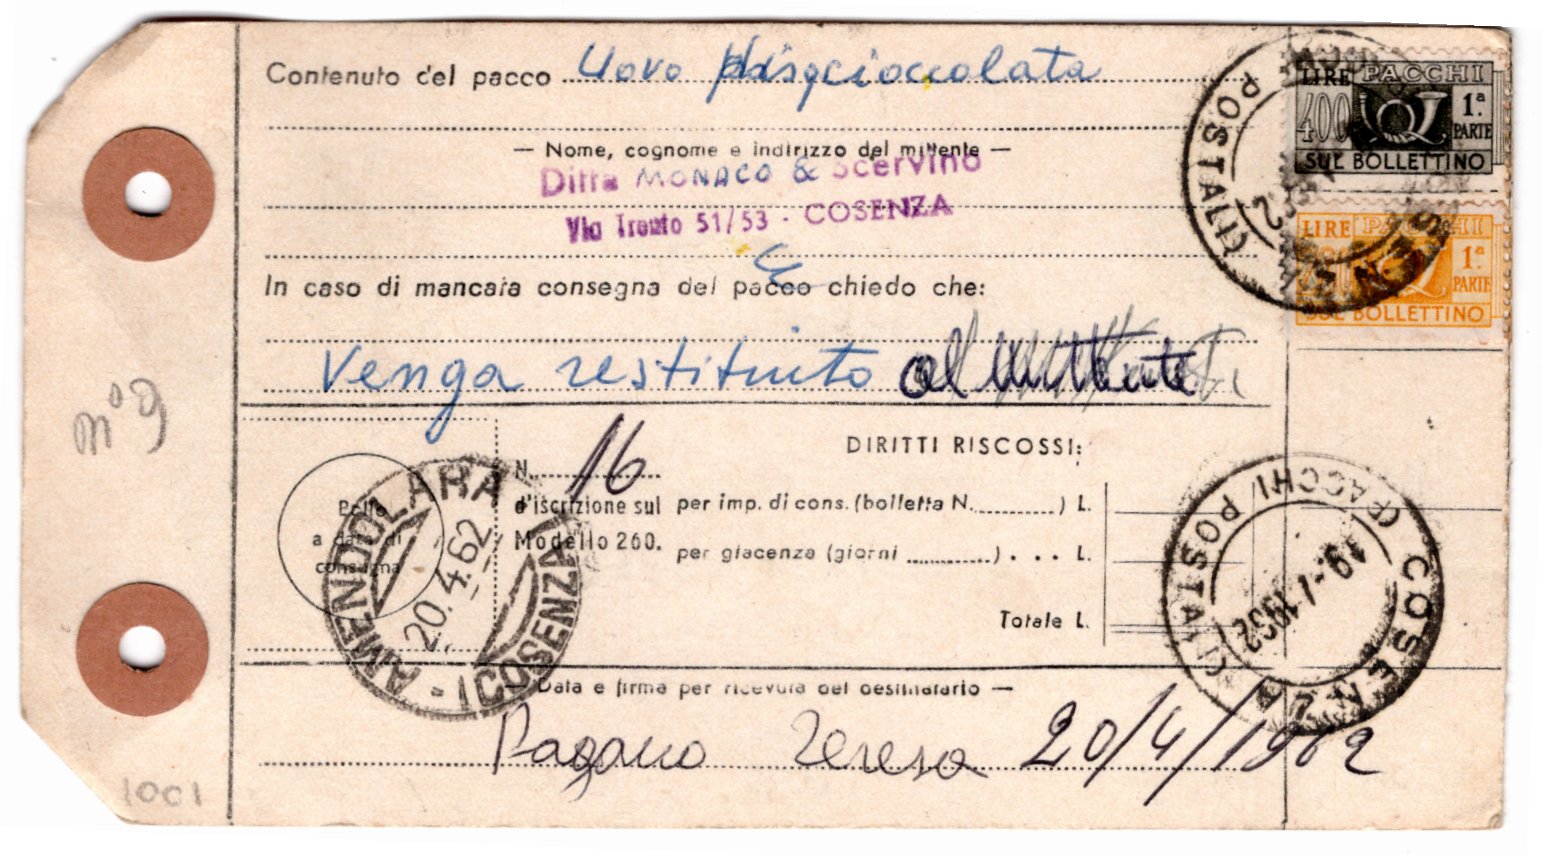 Contenuto del pacco Uovo di cioccolata
— Nome, cognome e indirizzo del mittente —
Ditta MONACO & Scervino
Via Trento 51/53 - COSENZA
In caso di mancata consegna del pacco chiedo che:
Venga restituito al mittente
LIRE PACCHI
400 1ª PARTE
SUL BOLLETTINO
LIRE PACCHI
1ª PARTE
SUL BOLLETTINO
PACCHI POSTALI COSENZA
N° 9
Bollo
a data di
consegna
AMENDOLARA (COSENZA)
20.4.62
N. 16
d'iscrizione sul
Modello 260.
DIRITTI RISCOSSI:
per imp. di cons. (bolletta N. ) L.
per giacenza (giorni ) . . . L.
Totale L.
PACCHI POSTALI COSENZA
1962
— Data e firma per ricevuta del destinatario —
Pagano Teresa 20/4/1962
1001